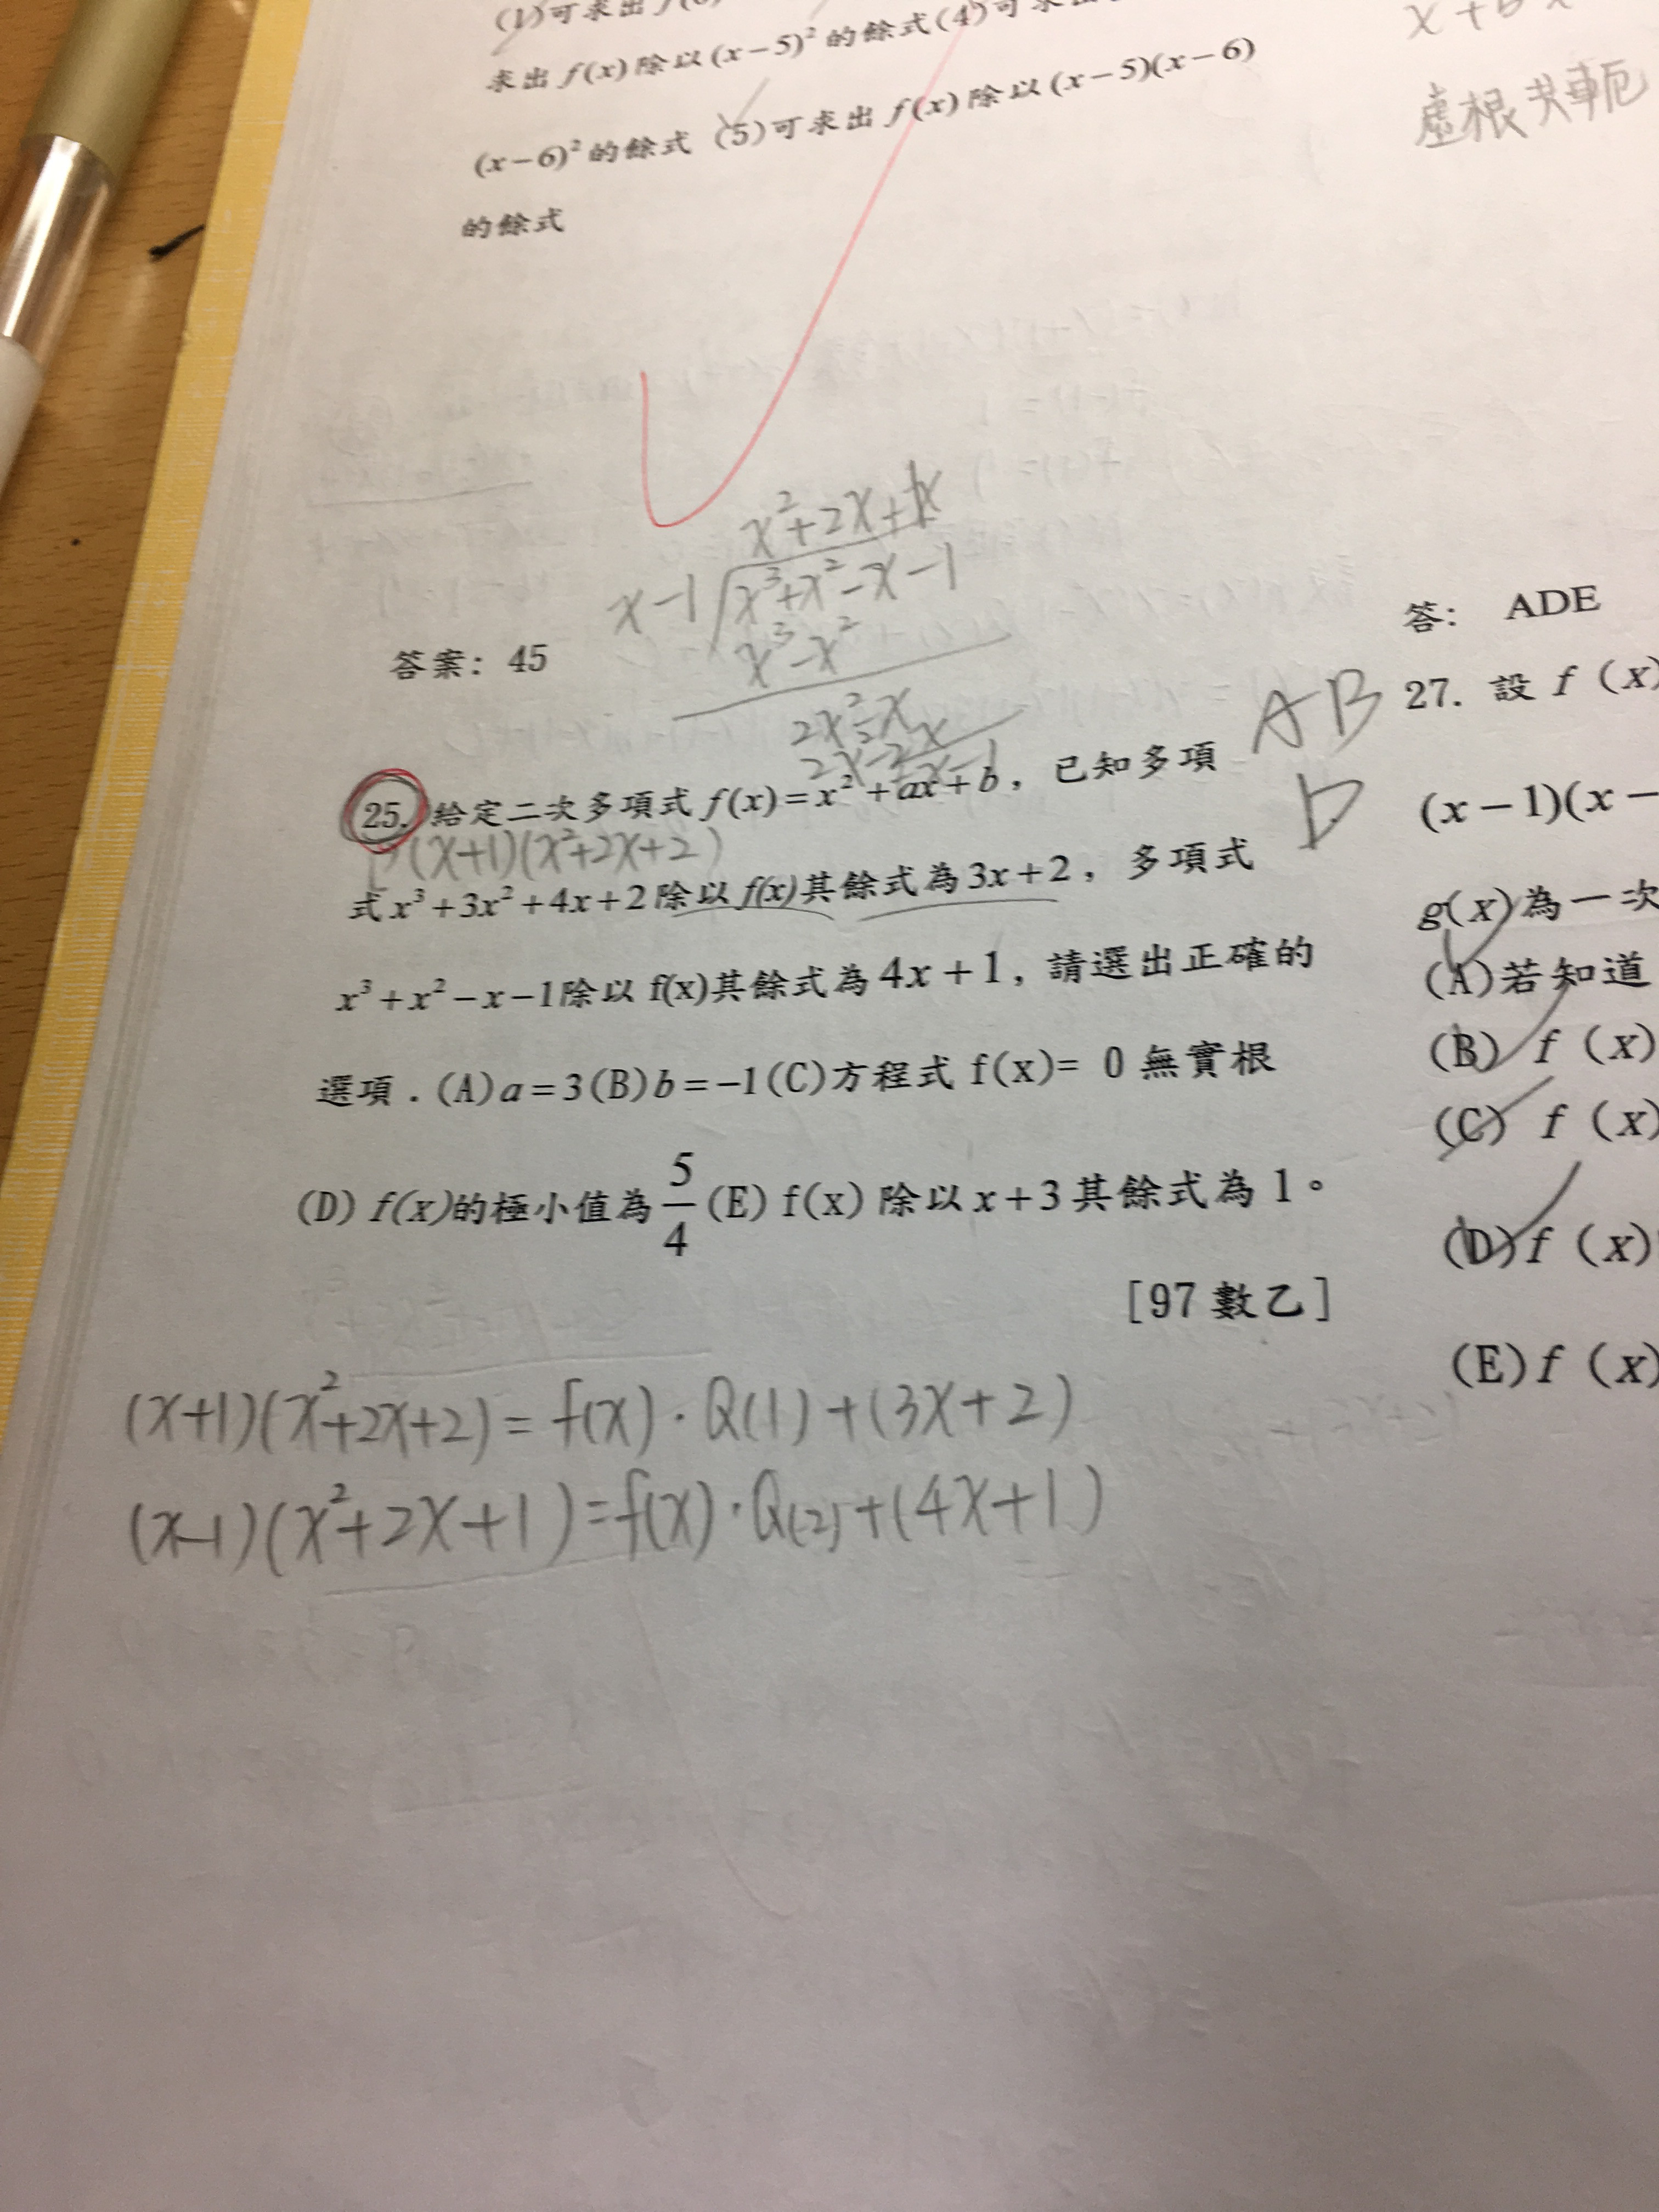 (1)可求出
求出 f(x) 除以 (x-5)² 的餘式(4)可求出
(x-6)² 的餘式 (5)可求出 f(x) 除以 (x-5)(x-6)
的餘式
虛根共軛
x²+2x+1
x-1 x³+x²-x-1
x³-x²
2x²-x
2x²-2x
x-1
答案: 45
25. 給定二次多項式 f(x)=x²+ax+b，已知多項
(x+1)(x²+2x+2)
式 x³+3x²+4x+2 除以 f(x)其餘式為 3x+2，多項式
x³+x²-x-1除以 f(x)其餘式為 4x+1，請選出正確的
選項．(A)a=3(B)b=-1(C)方程式 f(x)= 0 無實根
(D) f(x)的極小值為 5/4 (E) f(x) 除以 x+3 其餘式為 1。
[97 數乙]
(x+1)(x²+2x+2)=f(x)·Q(1)+(3x+2)
(x-1)(x²+2x+1)=f(x)·Q(2)+(4x+1)
答: ADE
AB
D
27. 設 f (x)
(x-1)(x-
g(x)為一次
(A)若知道
(B) f (x)
(C) f (x)
(D) f (x)
(E) f (x)